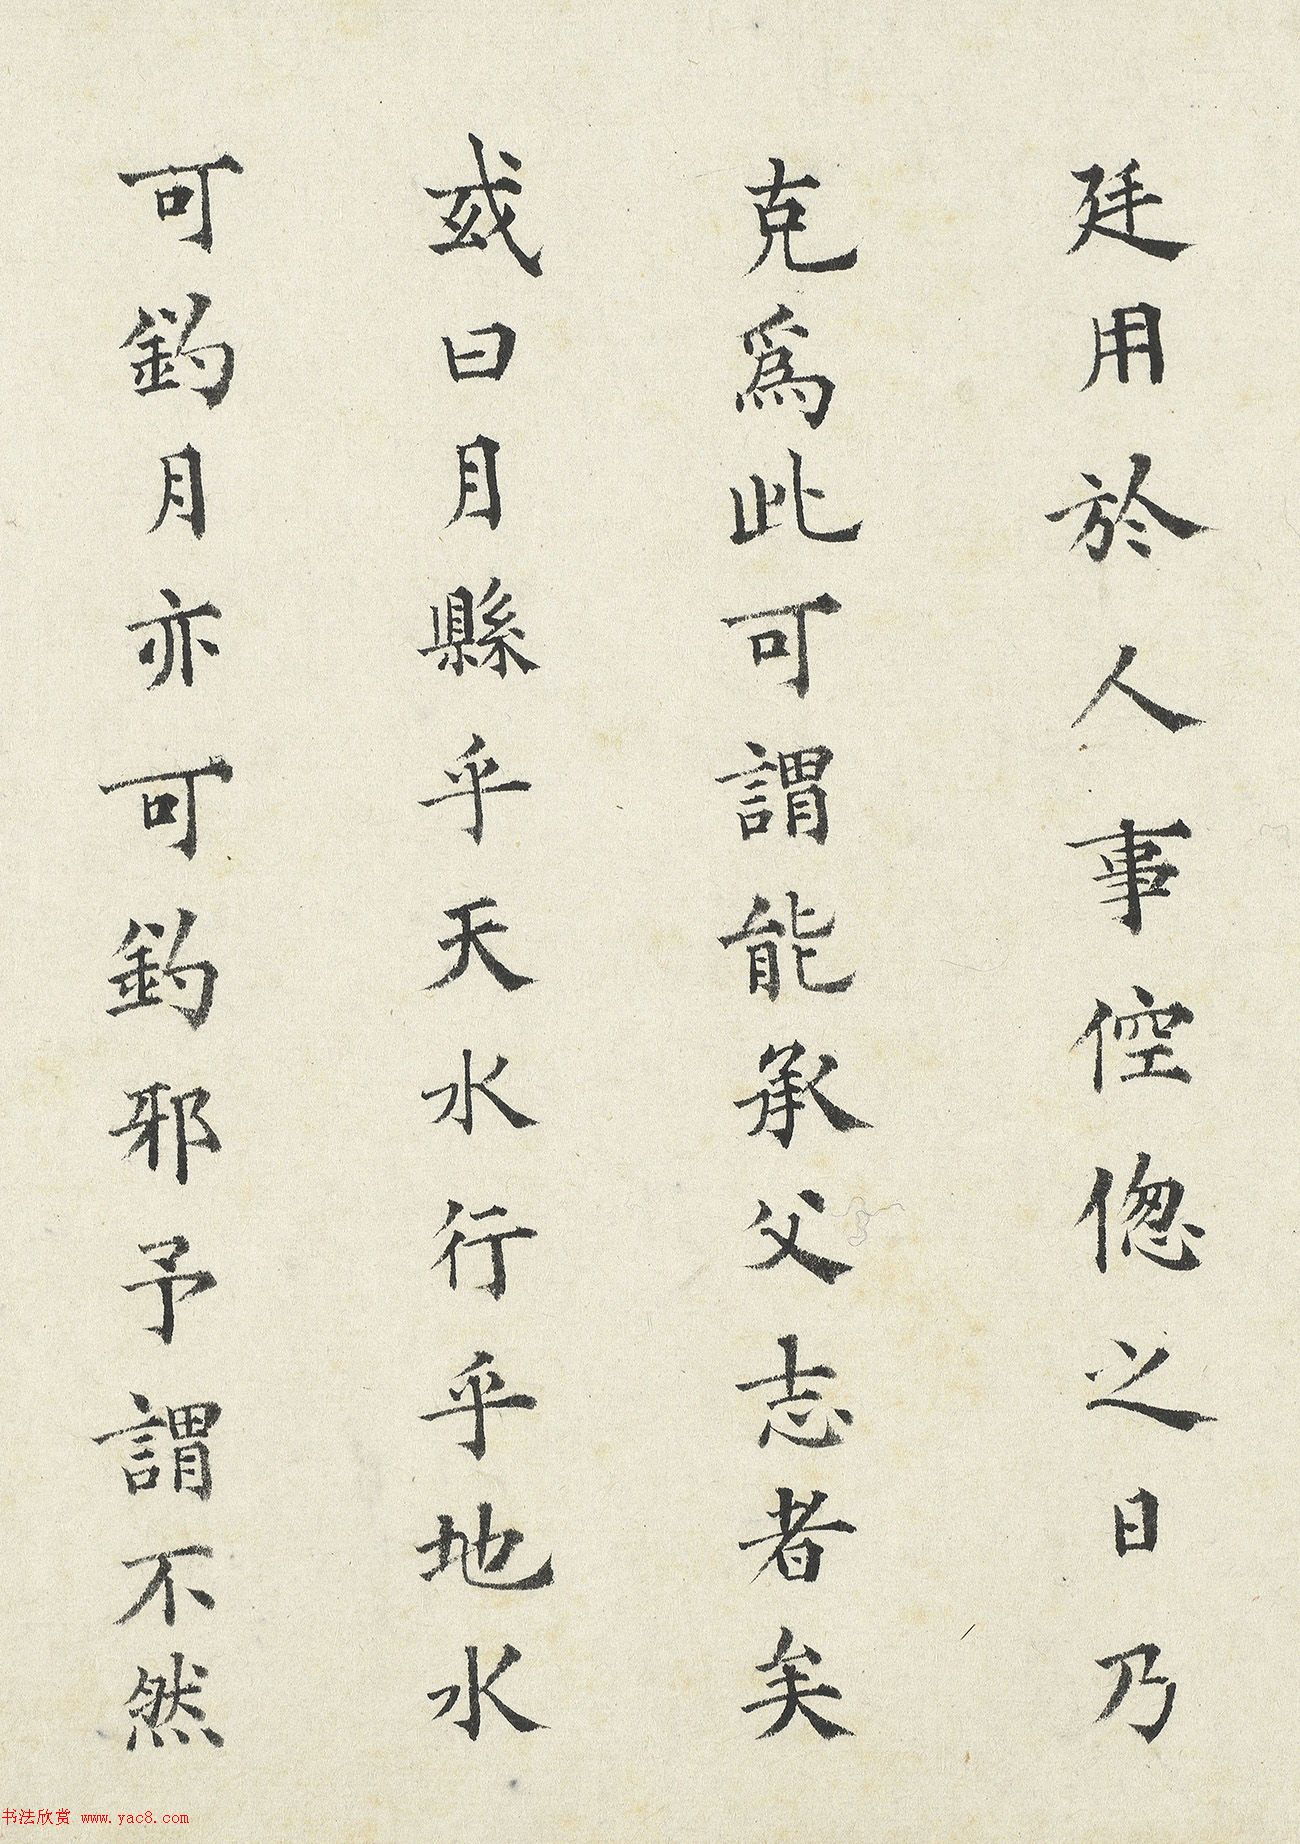 廷用於人事倥偬之日乃
克爲此可謂能承父志者矣
或曰月縣乎天水行乎地水
可釣月亦可釣邪予謂不然
书法欣赏 www.yac8.com